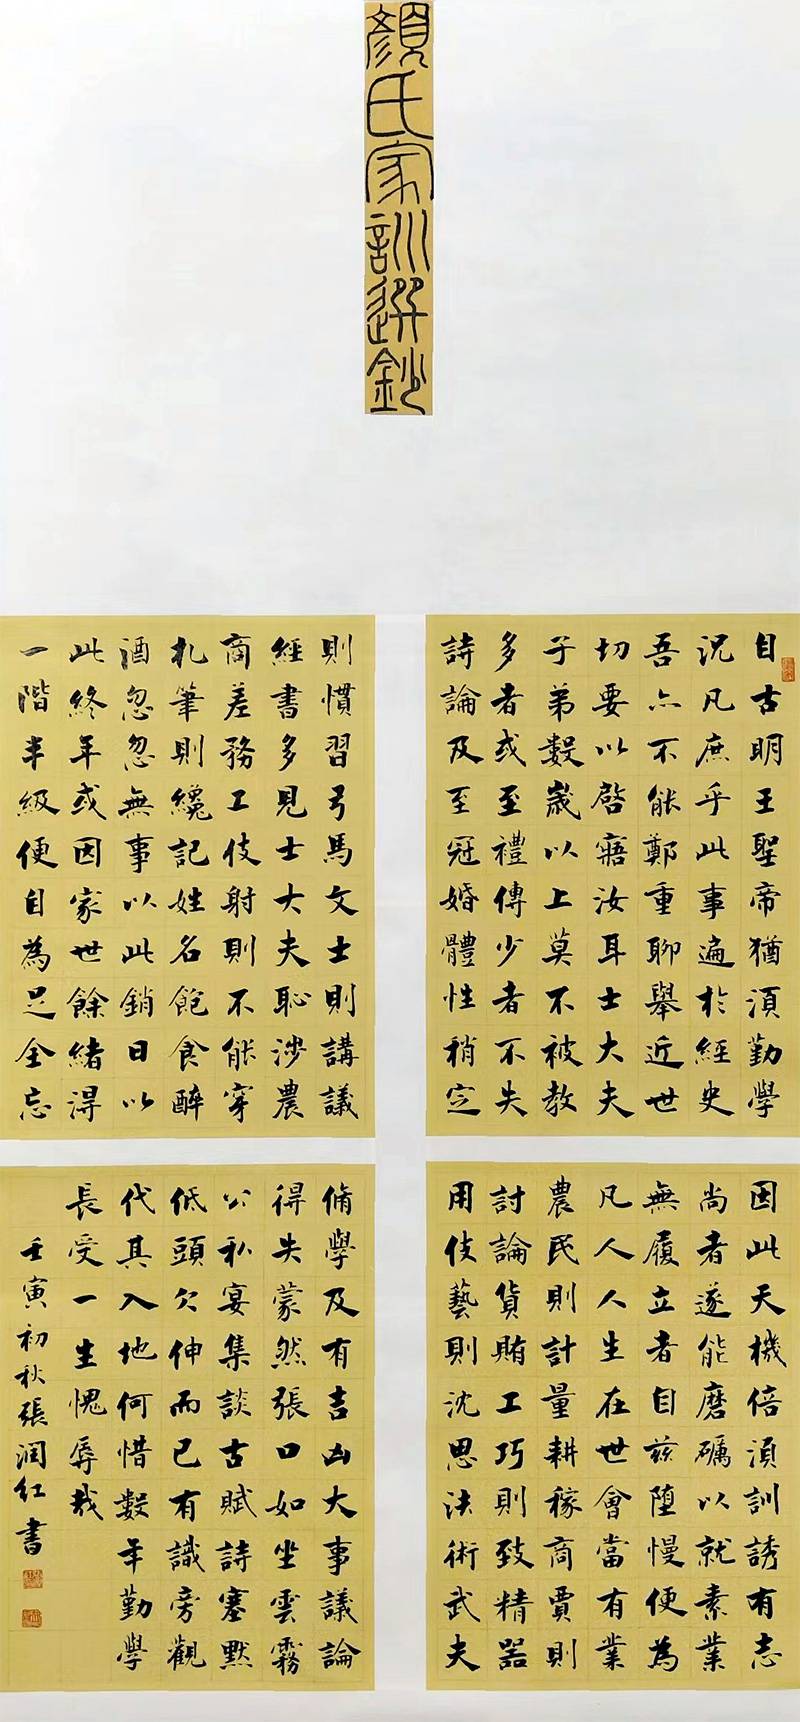 顏氏家訓選鈔
自古明王聖帝猶須勤學
況凡庶乎此事遍於經史
吾亦不能鄭重聊舉近世
切要以啓寤汝耳士大夫
子弟數歲以上莫不被教
多者或至禮傳少者不失
詩論及至冠婚體性稍定
因此天機倍須訓誘有志
尚者遂能磨礪以就素業
無履立者自茲堕慢便為
凡人人生在世會當有業
農民則計量耕稼商賈則
討論貨賄工巧則致精器
用伎藝則沈思法術武夫
則慣習弓馬文士則講議
經書多見士大夫恥涉農
商差務工伎射則不能穿
札筆則纔記姓名飽食醉
酒忽忽無事以此銷日以
此終年或因家世餘緒得
一階半級便自為足全忘
脩學及有吉凶大事議論
得失蒙然張口如坐雲霧
公私宴集談古賦詩塞默
低頭欠伸而已有識旁觀
代其入地何惜數年勤學
長受一生愧辱哉
壬寅初秋張潤红書